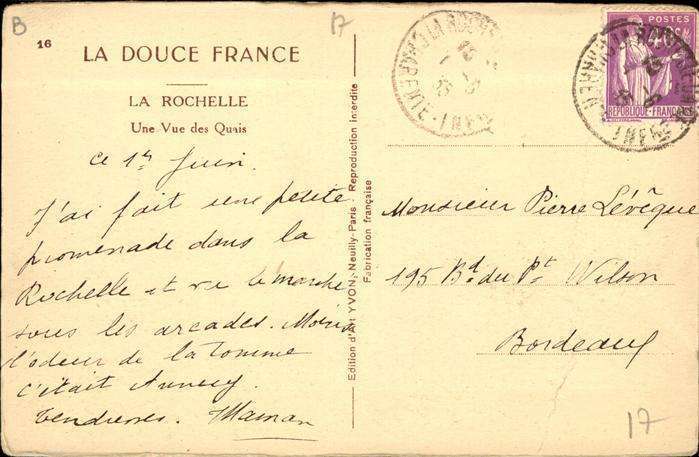 B
17
16
LA DOUCE FRANCE
LA ROCHELLE
Une Vue des Quais
ce 1er Juin.
J'ai fait une petite
promenade dans la
Rochelle et vu le marché
sous les arcades. Moins
l'odeur de la tomme
c'était Annecy
Tendresses. Maman
Edition d'Art YVON, Neuilly-Paris - Reproduction interdite
Fabrication française
LA ROCHE
CHARENTE-INFRE
POSTES
REPUBLIQUE FRANÇAISE
Monsieur Pierre Lévêque
195 Bd. du Pt Wilson
Bordeaux
17